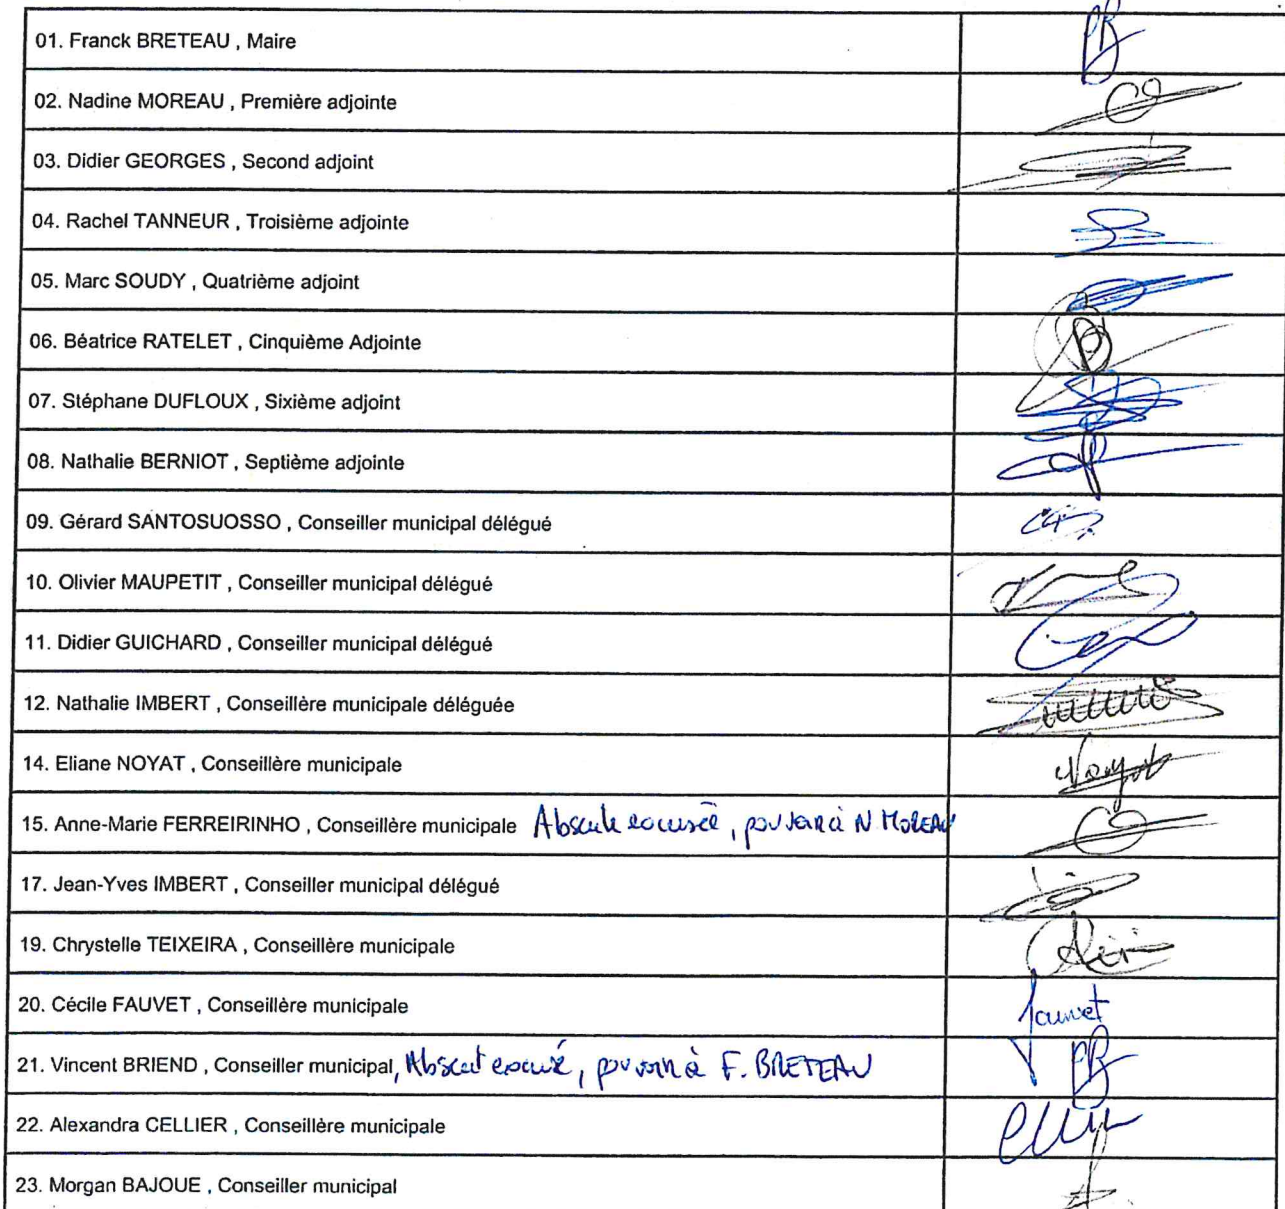 01. Franck BRETEAU , Maire
02. Nadine MOREAU , Première adjointe
03. Didier GEORGES , Second adjoint
04. Rachel TANNEUR , Troisième adjointe
05. Marc SOUDY , Quatrième adjoint
06. Béatrice RATELET , Cinquième Adjointe
07. Stéphane DUFLOUX , Sixième adjoint
08. Nathalie BERNIOT , Septième adjointe
09. Gérard SANTOSUOSSO , Conseiller municipal délégué
10. Olivier MAUPETIT , Conseiller municipal délégué
11. Didier GUICHARD , Conseiller municipal délégué
12. Nathalie IMBERT , Conseillère municipale déléguée
14. Eliane NOYAT , Conseillère municipale Noyat
15. Anne-Marie FERREIRINHO , Conseillère municipale Absente excusée, pouvoir à N MOREAU
17. Jean-Yves IMBERT , Conseiller municipal délégué
19. Chrystelle TEIXEIRA , Conseillère municipale
20. Cécile FAUVET , Conseillère municipale fauvet
21. Vincent BRIEND , Conseiller municipal, Absent excusé, pouvoir à F. BRETEAU
22. Alexandra CELLIER , Conseillère municipale
23. Morgan BAJOUE , Conseiller municipal